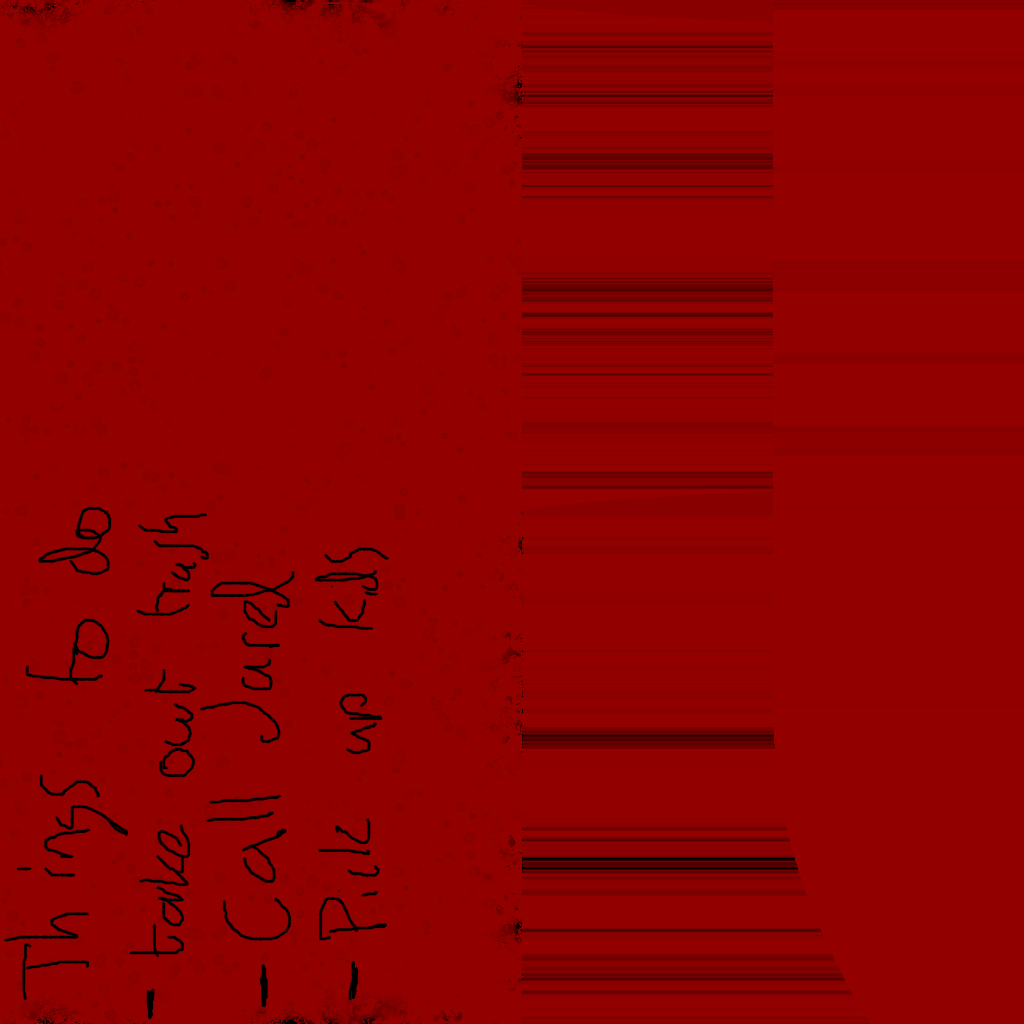 Things to do
- take out trash
- Call Jared
- Pick up kids